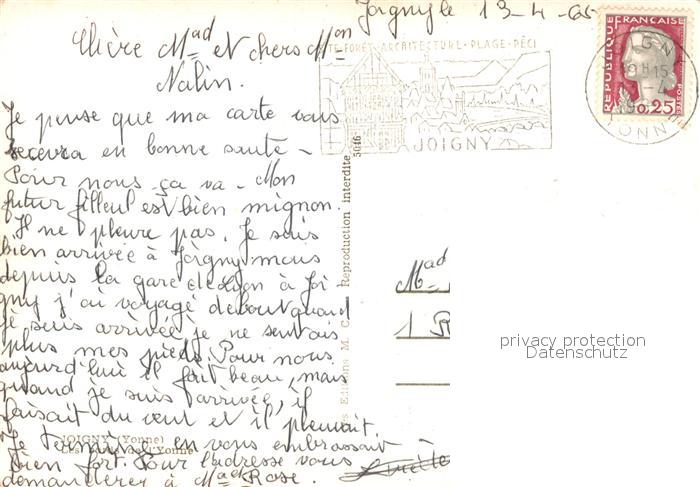 Joigny le 13-4-65
Chère Mad et chers Mon
Nalin.
Je pense que ma carte vous
recevra en bonne santé -
Pour nous ça va - Mon
futur filleul est bien mignon.
Il ne pleure pas. Je suis
bien arrivée à Joigny mais
depuis la gare de Lyon à Joi
gny j'ai voyagé debout quand
je suis arrivée je ne sentais
plus mes pieds Pour nous
aujourd'hui il fait beau, mais
quand je suis arrivée, il
faisait du vent et il pleuvait.
Je termine en vous embrassant
bien fort. Pour l'adresse vous
demanderer à Mad Rose.
FORÊT-ARCHITECTURE-PLAGE-PÊCH
JOIGNY
RÉPUBLIQUE FRANÇAISE
POSTES
0,25
19H15
YONNE
Editions M. C. - Reproduction interdite
5046
JOIGNY (Yonne)
l'Yonne
Mad
1
privacy protection
Datenschutz